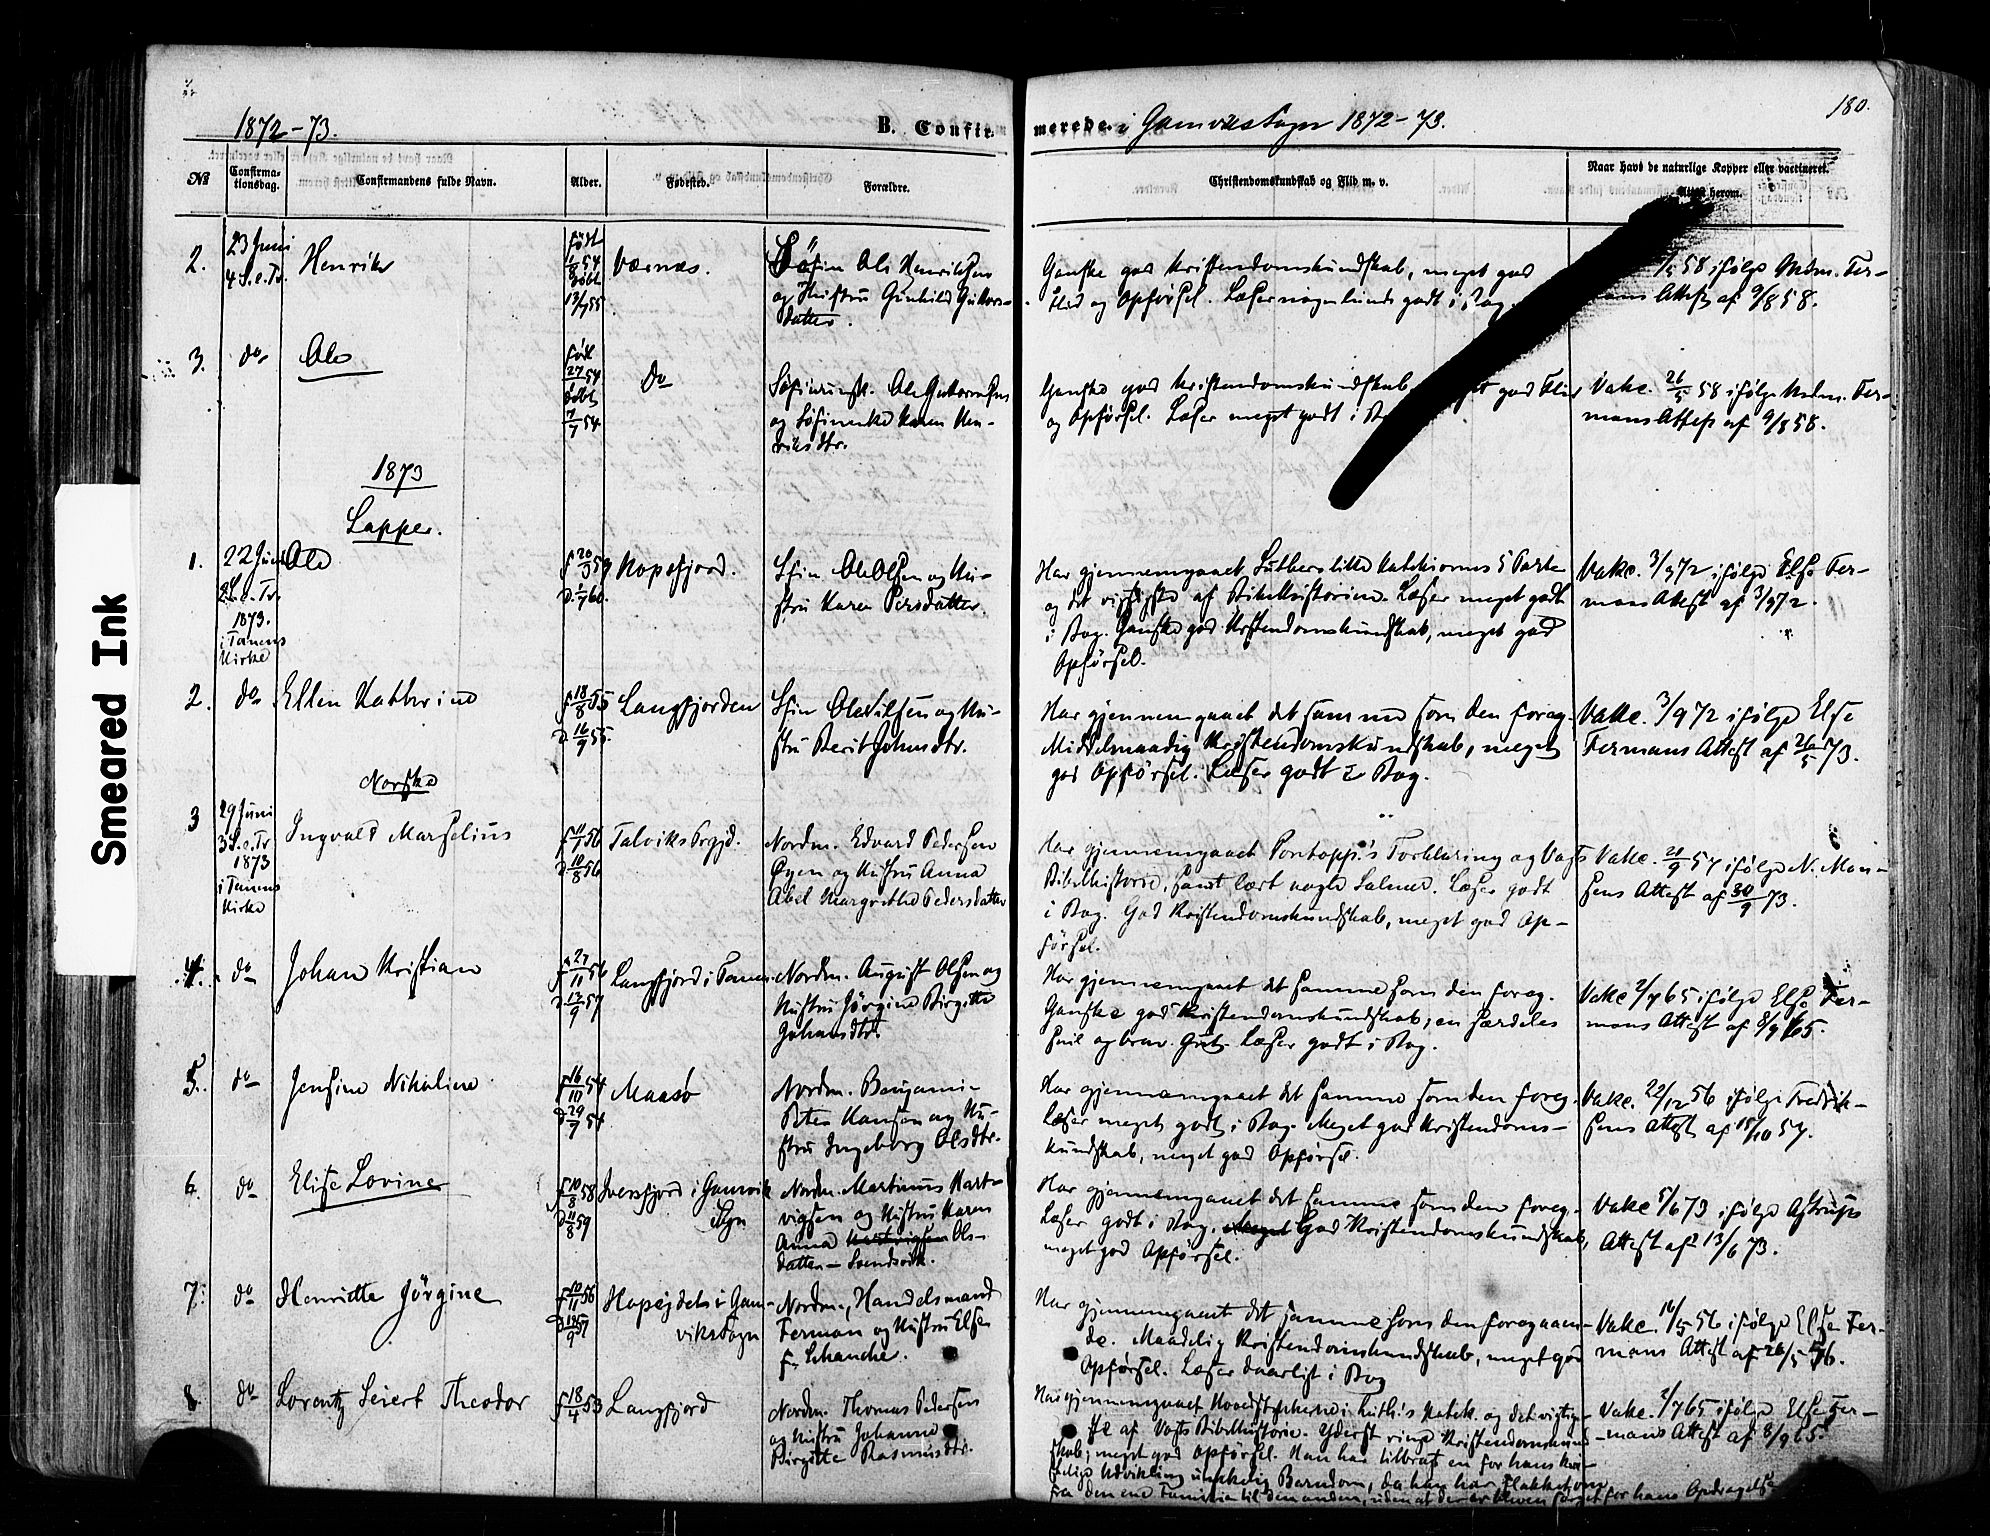 180.
1872-73.
B. Confir-
merede i Gamvik Sogn 1872-73.
No
Confirma-
tionsdag.
Confirmandens fulde Navn.
Alder.
Fødested.
Forældre.
Christendomskundskab og Flid m. v.
Naar havt de naturlige Kopper eller vaccineret.
Attest herom.
2.
23 Juni
4 S. e. Tr.
Henrik
født
Værnæs.
Ole Henriksen
og Hustru Gunhild
datter.
Ganske god Kristendomskundskab, meget god
Flid og Opførsel. Læser nogenlunde godt i Bog.
58 ifølge Mdm. Fer-
mans Attest af 9/8 58.
3.
do
Ole
født
27 54
døbt
7/7 54.
do
og Karen Hen-
riksdtr.
Ganske god Kristendomskundskab god Flid
og Opførsel. Læser meget godt i
Vakc. 26/5 58 ifølge Mdm. Fer-
mans Attest af 9/8 58.
1873
Lapper.
1.
22 Juni
2 S. e. Tr.
1873.
i Tanens
Kirke
Ole
f 20/3 59
d. 1/7 60.
Hopsfjord.
Sfin Ole Olsen og Hu-
stru Karen Persdatter.
Har gjennemgaaet Luthers lille Katekismes 5 Parter
og det vigtigste af Bibelhistorien. Læser meget godt
i Bog. Ganske god Kristendomskundskab, meget god
Opførsel.
Vakc. 3/9 72 ifølge Else Fer-
mans Attest af 3/9 72.
2.
do
Ellen Kathrine
f 18/8 55
d. 16/9 55.
Langfjorden
Sfin Ole Nilsen og Hu-
stru Berit Johnsdtr.
Har gjennemgaaet det samme som den foreg.
Middelmaadig Kristendomskundskab, meget
god Opførsel. Læser godt i Bog.
Vakc. 3/9 72 ifølge Else
Fermans Attest af 26/5 73.
Norske
3
29 Juni
3 S. e. Tr.
1873
i Tanens
Kirke
Ingvald Marselius
f 11/7 56
d. 10/8 56
Talviks Prgjd.
Nordm. Edvard Pedersen
Øyen og Hustru Anna
Abel Margrethe Pedersdatter
Har gjennemgaaet Pontopp's Forklaring og Vogts
Bibelhistorie, samt lært nogle Salmer. Læser godt
i Bog. God Kristendomskundskab, meget god Op-
førsel.
Vakc. 20/9 57 ifølge N. Mon-
sens Attest af 30/9 73.
4.
do
Johan Kristian
f 27/11 56
d. 13/9 57
Langfjord i Tanen.
Nordm. August Olsen og
Hustru Jørgine Birgitte
Johansdtr.
Har gjennemgaaet det samme som den foreg.
Ganske god Kristendomskundskab; en særdeles
snil og brav Gut. Læser godt i Bog.
Vakc 2/7 65 ifølge Else Fer-
mans Attest af 8/9 65.
5.
do
Jensine Nikoline
f 16/10 54
d. 29/7 54
Maasø
Nordm. Benjami-
Peter Hansen og Hu-
stru Ingeborg Olsdtr.
Har gjennemgaaet det samme som den foreg.
Læser meget godt i Bog. Meget god Kristendoms-
kundskab, meget god Opførsel.
Vakc. 22/12 56 ifølge Fredrik-
sens Attest af 18/10 57.
6.
do
Elise Lovine
f 10/8 58
d 11/8 59
Iversfjord i Gamvik
Sogn
Nordm. Martinus Hart-
vigsen og Hustru Karen
Anna Hartvigsen Ols-
datter - Svendsvik.
Har gjennemgaaet det samme som den foreg.
Læser godt i Bog. Meget God Kristendomskundskab,
meget god Opførsel.
Vakc 5/6 73 ifølge Astrups
Attest af 13/6 73.
7.
do
Henriette Jørgine
f 10/11 56
Hopsejdet i Gam-
viks Sogn
Nordm., Handelsmand
Ferman og Hustru Else
f. Schanche.
Har gjennemgaaet det samme som den foregaaen-
de. Maadelig Kristendomskundskab, meget god
Opførsel. Læser daarligt i Bog
Vakc. 16/5 56 ifølge Else Fer-
mans Attest af 26/5 76.
8.
do
Lorentz Seiert Theodor
f 18/4 53
Langfjord
Nordm. Thomas Pedersen
og Hustru Johanne
Birgitte Rasmusdtr.
Har gjennemgaaet Hovedstykkerne i Luth.'s Katek. og det vigtig-
ste af Vogts Bibelhistorie. Yderst ringe Kristendomskund-
skab; meget god Opførsel. Han har tilbragt en for hans
Udvikling uheldig Barndom, da han har flakket om
fra den ene Familie til den anden, uden at der er bleven sørget for hans Opdragelse
Vakc. 2/7 65 ifølge Else Fer-
mans Attest af 8/9 65.
Smeared Ink